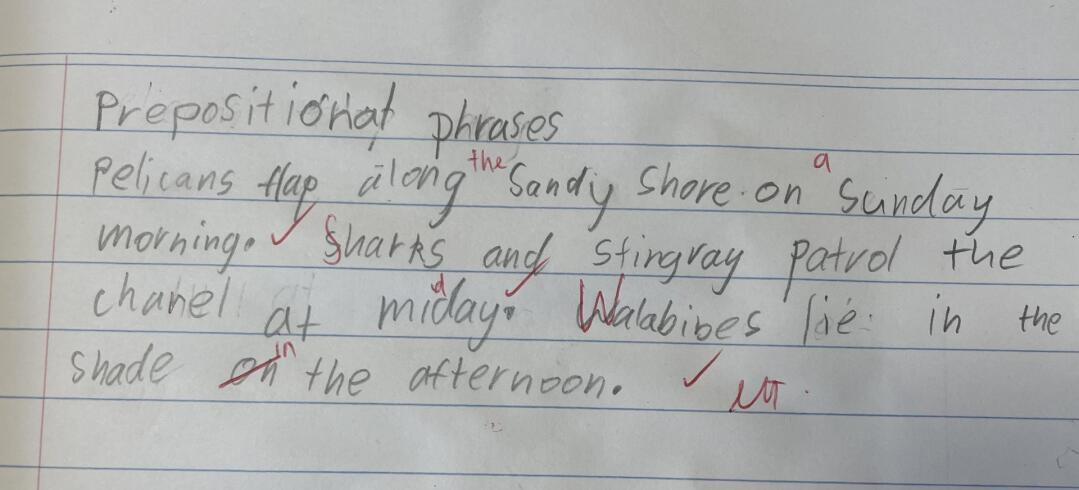 Prepositional phrases
Pelicans flap along the Sandy Shore. on a Sunday
morning. Sharks and Stingray Patrol the
chanel at midday. Walabibes lie in the
Shade on in the afternoon.